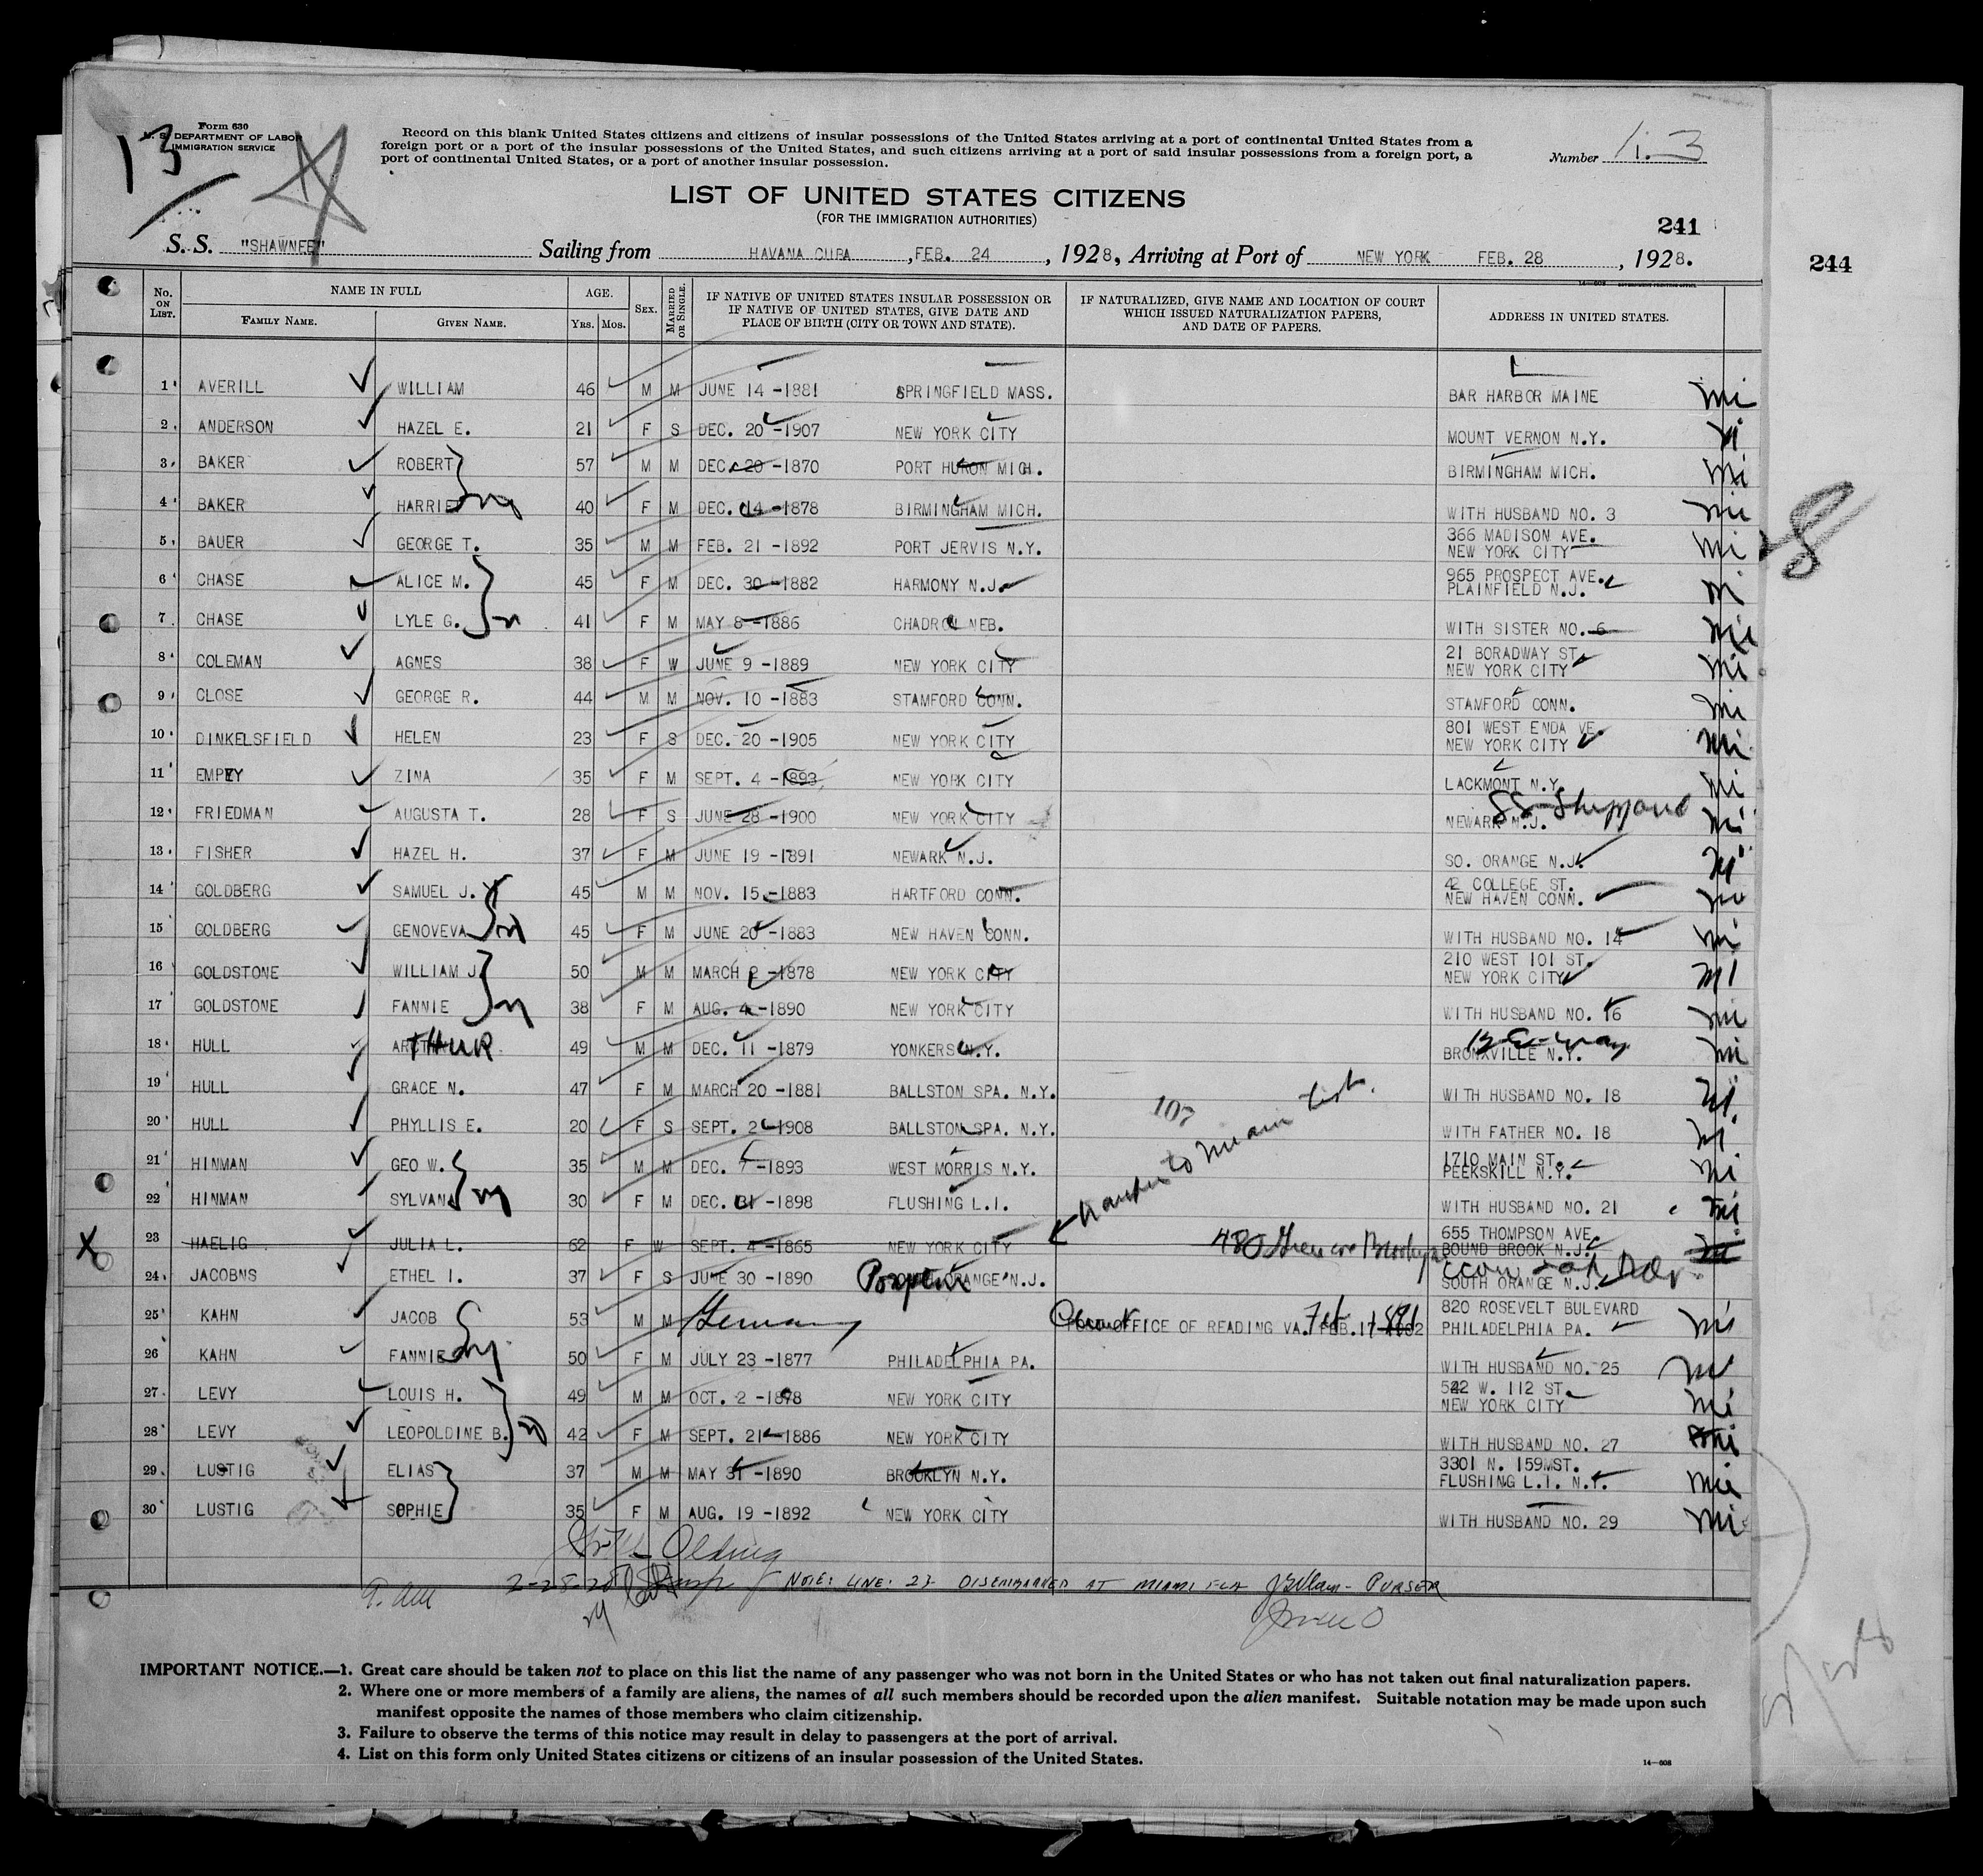 Form 630
U. S. DEPARTMENT OF LABOR
IMMIGRATION SERVICE
13
Record on this blank United States citizens and citizens of insular possessions of the United States arriving at a port of continental United States from a
foreign port or a port of the insular possessions of the United States, and such citizens arriving at a port of said insular possessions from a foreign port, a
port of continental United States, or a port of another insular possession.
Number 13
LIST OF UNITED STATES CITIZENS
(FOR THE IMMIGRATION AUTHORITIES)
241
244
S. S. "SHAWNEE" Sailing from HAVANA CUBA, FEB. 24, 1928, Arriving at Port of NEW YORK FEB. 28, 1928.
No. ON LIST. NAME IN FULL FAMILY NAME. GIVEN NAME. AGE. YRS. MOS. SEX. MARRIED OR SINGLE. IF NATIVE OF UNITED STATES INSULAR POSSESSION OR IF NATIVE OF UNITED STATES, GIVE DATE AND PLACE OF BIRTH (CITY OR TOWN AND STATE). IF NATURALIZED, GIVE NAME AND LOCATION OF COURT WHICH ISSUED NATURALIZATION PAPERS, AND DATE OF PAPERS. ADDRESS IN UNITED STATES.
1 AVERILL WILLIAM 46 M M JUNE 14 -1881 SPRINGFIELD MASS. BAR HARBOR MAINE
2 ANDERSON HAZEL E. 21 F S DEC. 20 -1907 NEW YORK CITY MOUNT VERNON N.Y.
3 BAKER ROBERT 57 M M DEC. 20 -1870 PORT HURON MICH. BIRMINGHAM MICH.
4 BAKER HARRIE 40 F M DEC. 14 -1878 BIRMINGHAM MICH. WITH HUSBAND NO. 3
5 BAUER GEORGE T. 35 M M FEB. 21 -1892 PORT JERVIS N.Y. 366 MADISON AVE. NEW YORK CITY
6 CHASE ALICE M. 45 F M DEC. 30 -1882 HARMONY N.J. 965 PROSPECT AVE. PLAINFIELD N.J.
7 CHASE LYLE G. 41 F M MAY 8 -1886 CHADRON NEB. WITH SISTER NO. 6
8 COLEMAN AGNES 38 F W JUNE 9 -1889 NEW YORK CITY 21 BORADWAY ST. NEW YORK CITY
9 CLOSE GEORGE R. 44 M M NOV. 10 -1883 STAMFORD CONN. STAMFORD CONN.
10 DINKELSFIELD HELEN 23 F S DEC. 20 -1905 NEW YORK CITY 801 WEST ENDA VE. NEW YORK CITY
11 EMPEY ZINA 35 F M SEPT. 4 -1893 NEW YORK CITY LACKMONT N.Y.
12 FRIEDMAN AUGUSTA T. 28 F S JUNE 28 -1900 NEW YORK CITY NEWARK N.J.
13 FISHER HAZEL H. 37 F M JUNE 19 -1891 NEWARK N.J. SO. ORANGE N.J.
14 GOLDBERG SAMUEL J. 45 M M NOV. 15 -1883 HARTFORD CONN. 42 COLLEGE ST. NEW HAVEN CONN.
15 GOLDBERG GENOVEVA 45 F M JUNE 20 -1883 NEW HAVEN CONN. WITH HUSBAND NO. 14
16 GOLDSTONE WILLIAM J. 50 M M MARCH 2 -1878 NEW YORK CITY 210 WEST 101 ST. NEW YORK CITY
17 GOLDSTONE FANNIE 38 F M AUG. 4 -1890 NEW YORK CITY WITH HUSBAND NO. 16
18 HULL ARTHUR 49 M M DEC. 11 -1879 YONKERS N.Y. BRONXVILLE N.Y.
19 HULL GRACE N. 47 F M MARCH 20 -1881 BALLSTON SPA. N.Y. WITH HUSBAND NO. 18
20 HULL PHYLLIS E. 20 F S SEPT. 2 -1908 BALLSTON SPA. N.Y. WITH FATHER NO. 18
21 HINMAN GEO W. 35 M M DEC. 7 -1893 WEST MORRIS N.Y. 1710 MAIN ST. PEEKSKILL N.Y.
22 HINMAN SYLVAN 30 F M DEC. 31 -1898 FLUSHING L.I. WITH HUSBAND NO. 21
transfer to Miami List.
X 23 HAELIG JULIA L. 62 F W SEPT. 4 -1865 NEW YORK CITY 655 THOMPSON AVE. BOUND BROOK N.J.
24 JACOBNS ETHEL I. 37 F S JUNE 30 -1890 ORANGE N.J. SOUTH ORANGE N.J.
25 KAHN JACOB 53 M M Germany OFFICE OF READING VA. FEB. 17 820 ROSEVELT BULEVARD PHILADELPHIA PA.
26 KAHN FANNIE 50 F M JULY 23 -1877 PHILADELPHIA PA. WITH HUSBAND NO. 25
27 LEVY LOUIS H. 49 M M OCT. 2 -1878 NEW YORK CITY 522 W. 112 ST. NEW YORK CITY
28 LEVY LEOPOLDINE B. 42 F M SEPT. 21 -1886 NEW YORK CITY WITH HUSBAND NO. 27
29 LUSTIG ELIAS 37 M M MAY 31 -1890 BROOKLYN N.Y. 3301 N. 159MST. FLUSHING L.I. N.Y.
30 LUSTIG SOPHIE 35 F M AUG. 19 -1892 NEW YORK CITY WITH HUSBAND NO. 29
Olding
2-28-28 NOTE: LINE: 23 DISEMBARKED AT MIAMI FLA PURSER
IMPORTANT NOTICE.—1. Great care should be taken not to place on this list the name of any passenger who was not born in the United States or who has not taken out final naturalization papers.
2. Where one or more members of a family are aliens, the names of all such members should be recorded upon the alien manifest. Suitable notation may be made upon such
manifest opposite the names of those members who claim citizenship.
3. Failure to observe the terms of this notice may result in delay to passengers at the port of arrival.
4. List on this form only United States citizens or citizens of an insular possession of the United States.
14—608